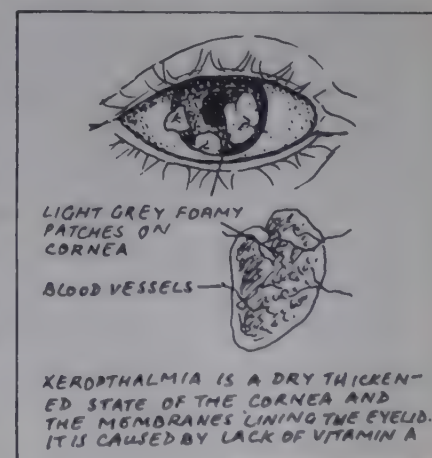 LIGHT GREY FOAMY
PATCHES ON
CORNEA
BLOOD VESSELS
XEROPTHALMIA IS A DRY THICKEN-
ED STATE OF THE CORNEA AND
THE MEMBRANES LINING THE EYELID.
IT IS CAUSED BY LACK OF VITAMIN A